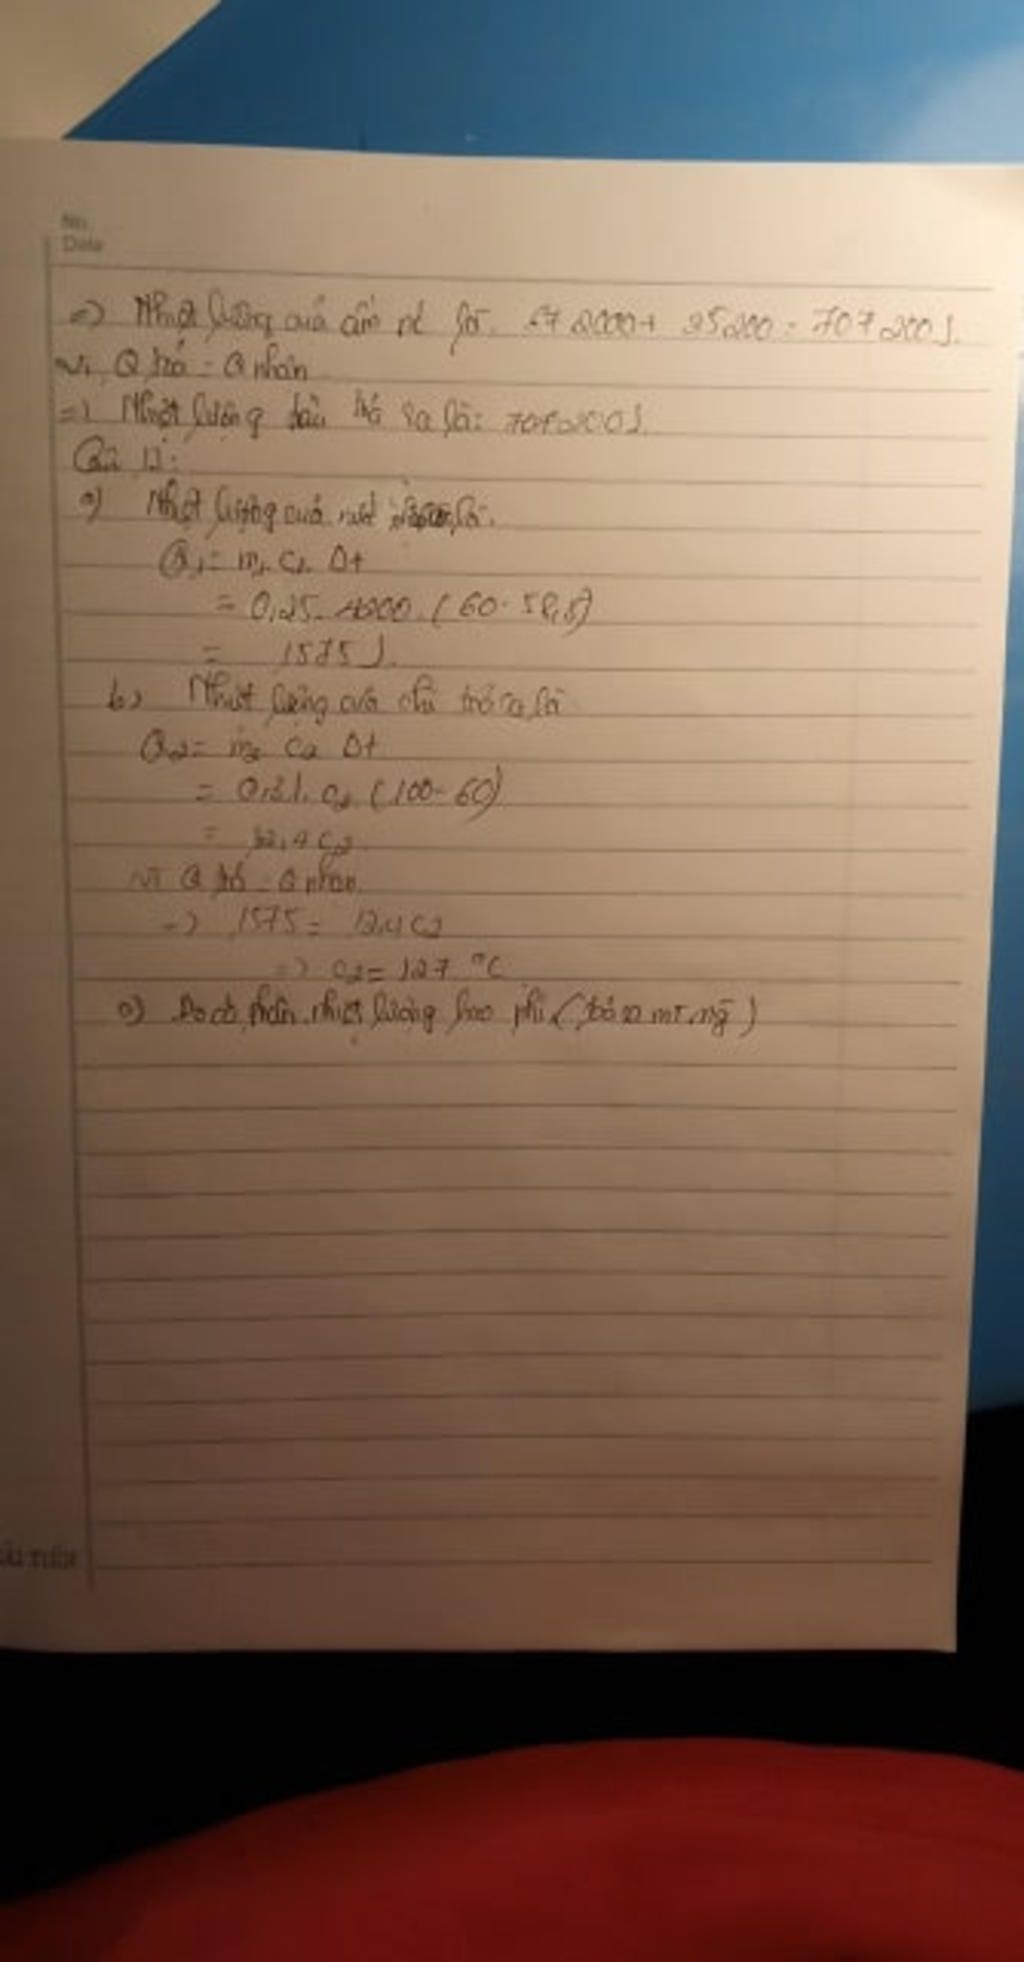 No.
Date
=> Nhiệt lượng của ấm nước là: 672000 + 35200 = 707200J.
Vì Q toả = Q nhận
=> Nhiệt lượng dầu toả ra là: 707200J.
Câu 13:
a) Nhiệt lượng của nước là:
Q1 = m1 c1 Δt
= 0,25. 4200. (60-58,5)
= 1575J.
b) Nhiệt lượng của chì toả ra là
Q2 = m2 c2 Δt
= 0,31. c2 (100-60)
= 12,4 c2
Vì Q toả = Q nhận
=> 1575 = 12,4 c2
=> c2 = 127 °C
c) Do có phần nhiệt lượng hao phí (toả ra mt